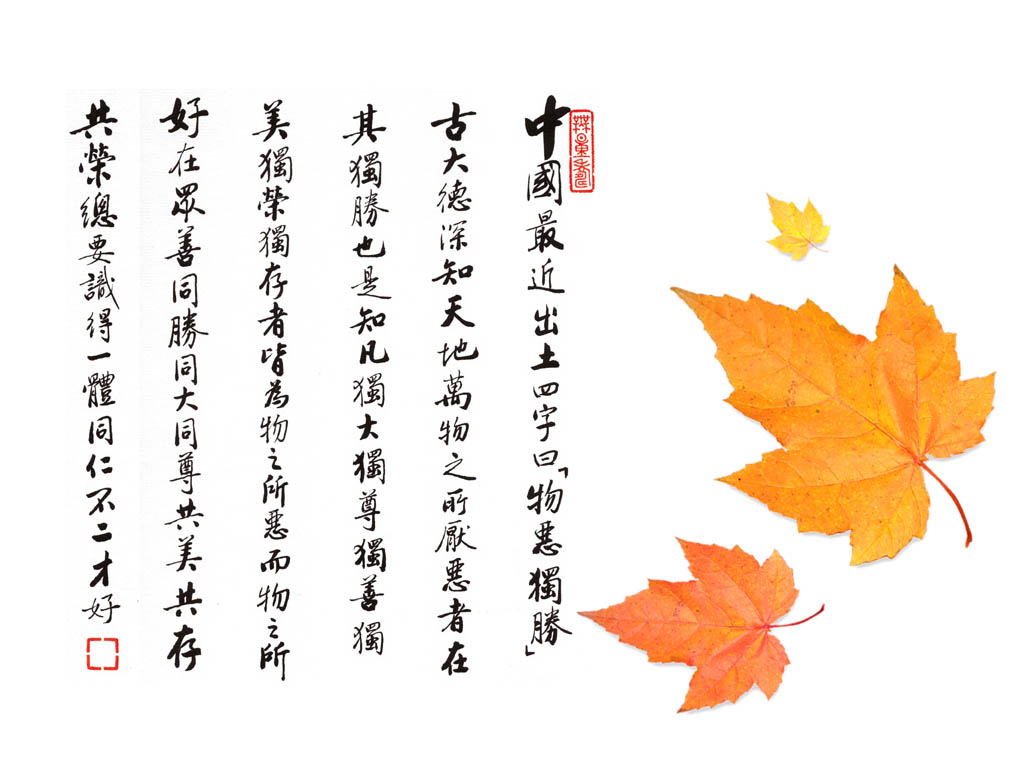 中國最近出土四字曰「物惡獨勝」
古大德深知天地萬物之所厭惡者在
其獨勝也是知凡獨大獨尊獨善獨
美獨榮獨存者皆為物之所惡而物之所
好在眾善同勝同大同尊共美共存
共榮總要識得一體同仁不二才好